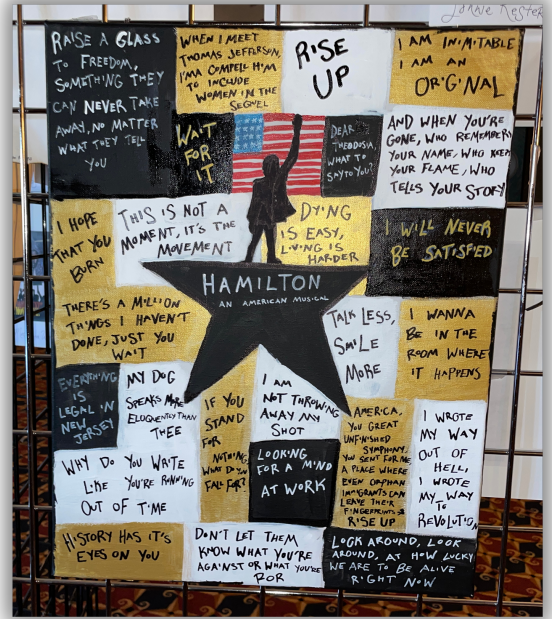 Lorrie Kester
RAISE A GLASS
TO FREEDOM,
SOMETHING THEY
CAN NEVER TAKE
AWAY, NO MATTER
WHAT THEY TELL
YOU
WHEN I MEET
THOMAS JEFFERSON,
I'MA COMPELL HIM
TO INCLUDE
WOMEN IN THE
SEQUEL
RISE
UP
I AM INIMITABLE
I AM AN
ORIGINAL
WAIT
FOR
IT
DEAR
THEODOSIA,
WHAT TO
SAY TO YOU?
AND WHEN YOU'RE
GONE, WHO REMEMBERS
YOUR NAME, WHO KEEPS
YOUR FLAME, WHO
TELLS YOUR STORY
I HOPE
THAT YOU
BURN
THIS IS NOT A
MOMENT, IT'S THE
MOVEMENT
DYING
IS EASY,
LIVING IS
HARDER
I WILL NEVER
BE SATISFIED
HAMILTON
AN AMERICAN MUSICAL
THERE'S A MILLION
THINGS I HAVEN'T
DONE, JUST YOU
WAIT
TALK LESS,
SMILE
MORE
I WANNA
BE IN THE
ROOM WHERE
IT HAPPENS
EVERYTHING
IS
LEGAL IN
NEW
JERSEY
MY DOG
SPEAKS MORE
ELOQUENTLY THAN
THEE
IF YOU
STAND
FOR
NOTHING,
WHAT DO YOU
FALL FOR?
I AM
NOT THROWING
AWAY MY
SHOT
AMERICA,
YOU GREAT
UNFINISHED
SYMPHONY,
YOU SENT FOR ME,
A PLACE WHERE
EVEN ORPHAN
IMMIGRANTS CAN
LEAVE THEIR
FINGERPRINTS &
RISE UP
I WROTE
MY WAY
OUT OF
HELL,
I WROTE
MY WAY
TO
REVOLUTION
WHY DO YOU WRITE
LIKE YOU'RE RUNNING
OUT OF TIME
LOOKING
FOR A MIND
AT WORK
HISTORY HAS IT'S
EYES ON YOU
DON'T LET THEM
KNOW WHAT YOU'RE
AGAINST OR WHAT YOU'RE
FOR
LOOK AROUND, LOOK
AROUND, AT HOW LUCKY
WE ARE TO BE ALIVE
RIGHT NOW